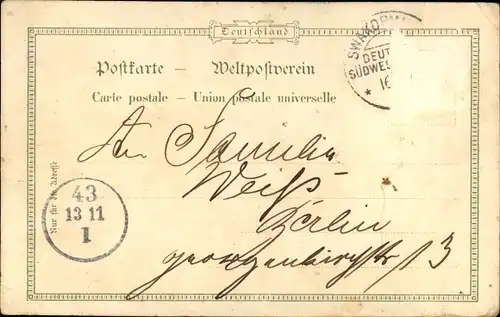 Deutschland
Postkarte — Weltpostverein
Carte postale — Union postale universelle
SWAKOPM
DEUT
SÜDWES
16
An Familie
Weiß
Berlin
Georgenkirchstr 13
Nur für die Adresse
43
13 11
1